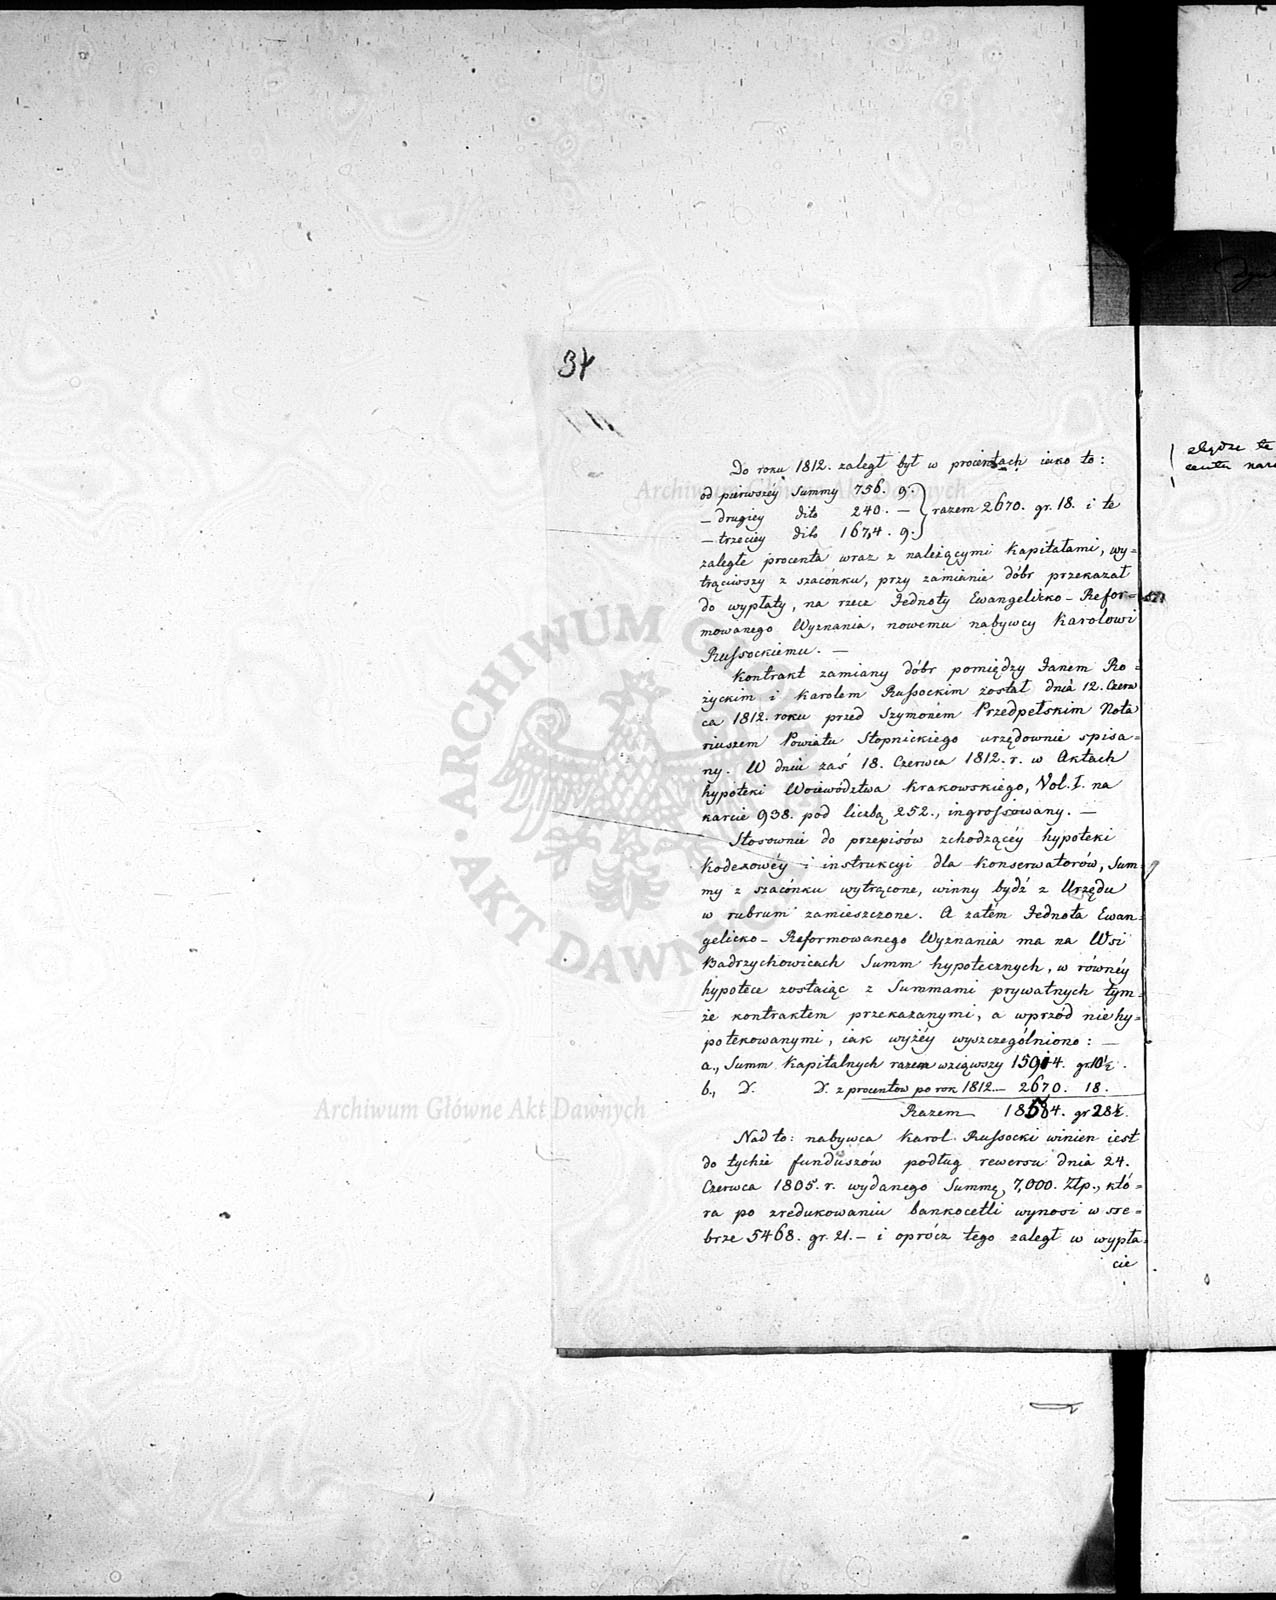 34
Do roku 1812. zaległ był w procentach iako to:
od pierwszéy Summy 756. 9.
— drugiéy dito 240. — } razem 2670. gr. 18. i te
— trzeciéy dito 1674. 9.
zaległe procenta wraz z należącymi Kapitałami, wy=
trąciwszy z szacónku, przy zamianie dóbr przekazał
do wypłaty, na rzecz Jednoty Ewangelicko-Refor=
mowanego Wyznania, nowemu nabywcy Karolowi
Russockiemu. —
Kontrakt zamiany dóbr pomiędzy Janem Ro=
życkim i Karolem Russockim został dnia 12. Czerw
ca 1812. roku przed Szymonem Przedpełskim Nota
riuszem Powiatu Stopnickiego urzędownie spisa=
ny. W dniu zaś 18. Czerwca 1812. r. w Aktach
hypoteki Woiewództwa Krakowskiego, Vol. I. na
karcie 938. pod liczbą 252., ingrossowany. —
Stosownie do przepisów zchodzącéy hypoteki
Kodexowéy i instrukcyi dla Konserwatorów, Sum=
my z szacónku wytrącone, winny bydź z Urzędu
w rubrum zamieszczone. A zatém Jednota Ewan=
gelicko-Reformowanego Wyznania ma na Wsi
Badrzychowicach Summ hypotecznych, w równéy
hypotece zostaiąc z Summami prywatnych tym=
że kontraktem przekazanymi, a wprzód niehy=
potekowanymi, iak wyżéy wyszczególniono: —
a., Summ Kapitalnych razem wziąwszy 15914. gr. 10½.
b., D. D. z procentów po rok 1812. — 2670. 18.
Razem 18584. gr 28½.
Nad to: nabywca Karol Russocki winien iest
do tychże funduszów podług rewersu dnia 24.
Czerwca 1805. r. wydanego Summę 7,000. Złp., któ=
ra po zredukowaniu bankocetli wynosi w sre=
brze 5468. gr. 21. — i oprócz tego zaległ w wypła=
cie
Archiwum Główne Akt Dawnych
ARCHIWUM GŁÓWNE AKT DAWNYCH
Archiwum Główne Akt Dawnych